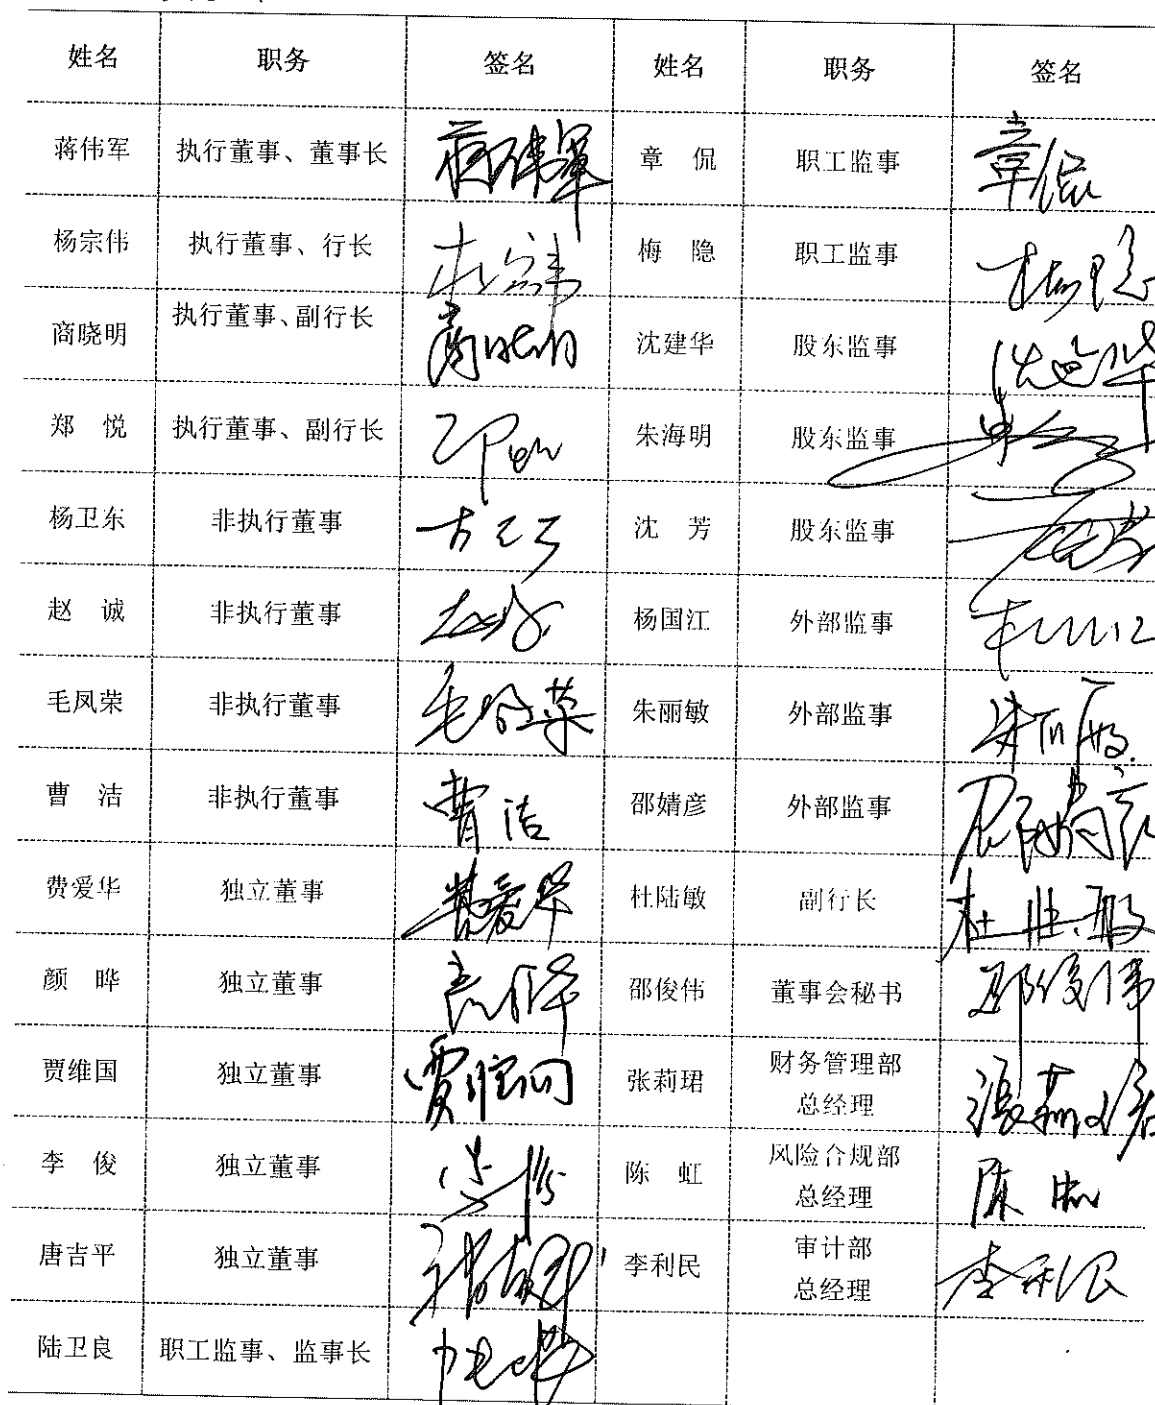 姓名 职务 签名 姓名 职务 签名
蒋伟军 执行董事、董事长 蒋伟军 章 侃 职工监事 章侃
杨宗伟 执行董事、行长 梅 隐 职工监事
商晓明 执行董事、副行长 商晓明 沈建华 股东监事 沈建华
郑 悦 执行董事、副行长 朱海明 股东监事
杨卫东 非执行董事 沈 芳 股东监事
赵 诚 非执行董事 杨国江 外部监事
毛凤荣 非执行董事 毛凤荣 朱丽敏 外部监事 朱丽敏
曹 洁 非执行董事 曹洁 邵婧彦 外部监事 邵婧彦
费爱华 独立董事 费爱华 杜陆敏 副行长 杜陆敏
颜 晔 独立董事 邵俊伟 董事会秘书 邵俊伟
贾维国 独立董事 贾维国 张莉珺 财务管理部 张莉珺
总经理
李 俊 独立董事 陈 虹 风险合规部 陈虹
总经理
唐吉平 独立董事 李利民 审计部 李利民
总经理
陆卫良 职工监事、监事长